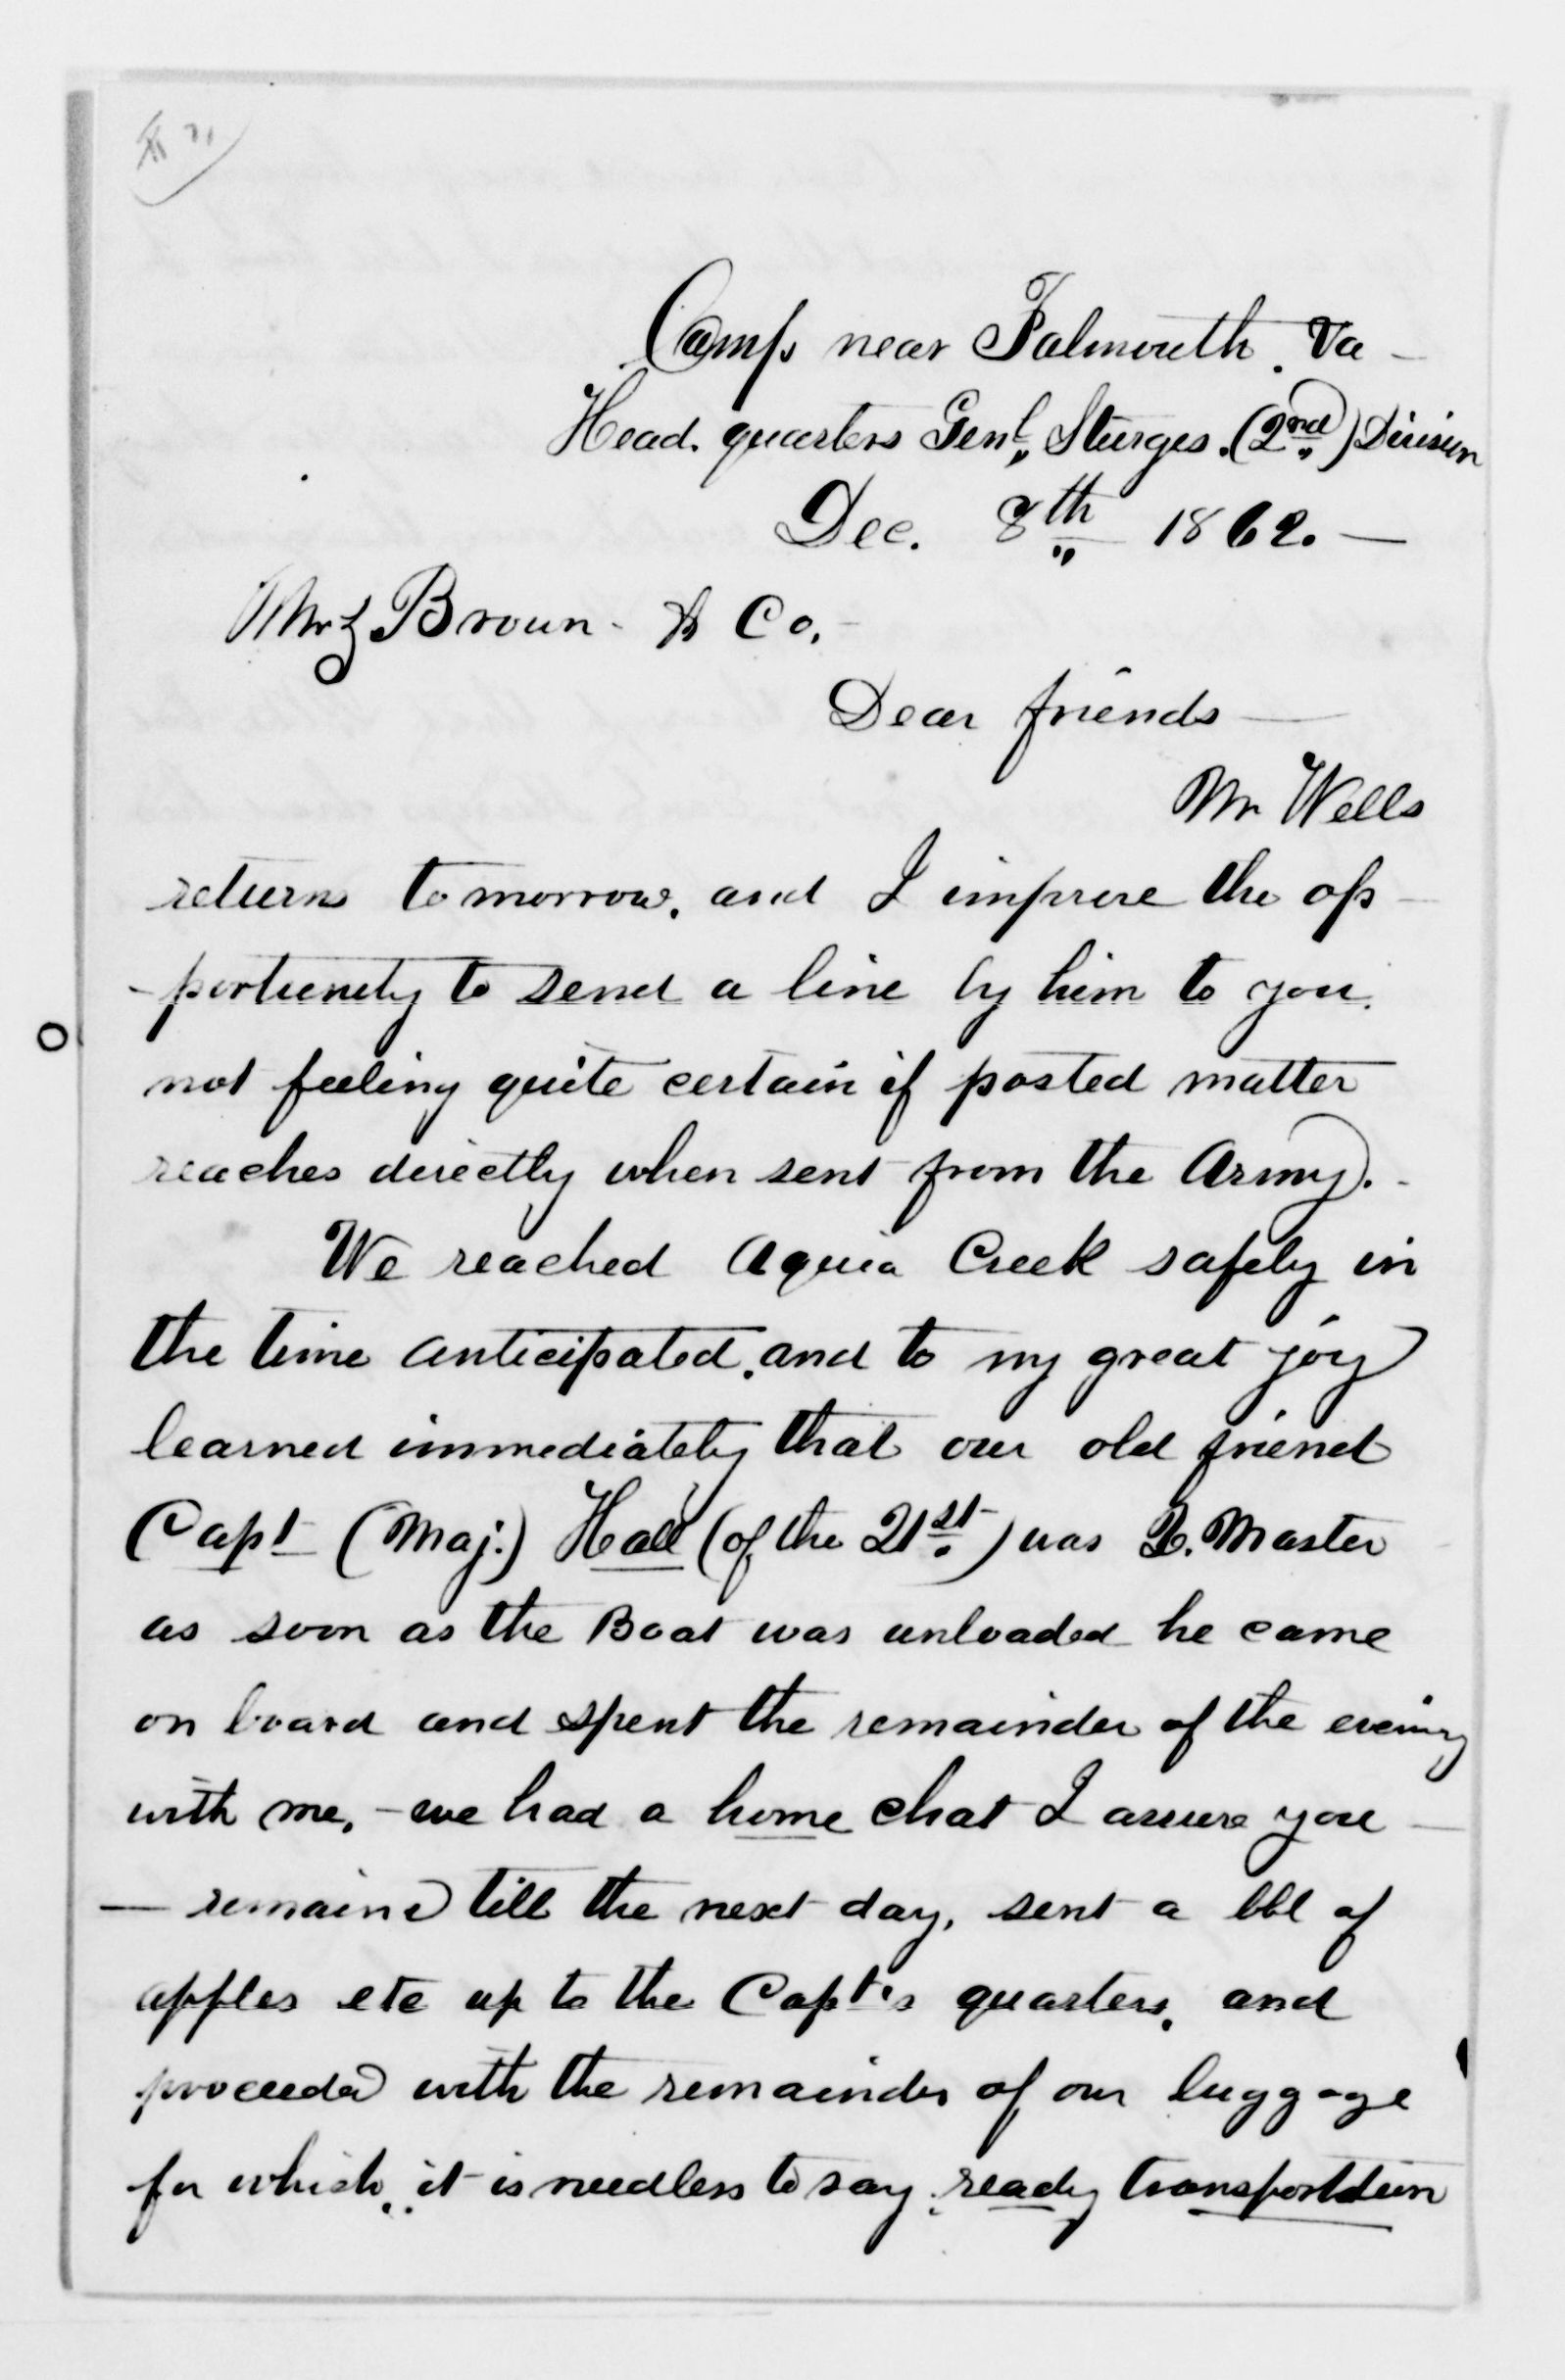 Camp near Falmouth. Va -
Head. quarters Genl. Sturges. (2nd) Division
Dec. 8th 1862. —
Brown & Co.
Dear friends —
Mr Wells
returns tomorrow, and I improve the op -
- portunity to send a line by him to you.
not feeling quite certain if posted matter
reaches directly when sent from the Army. -
We reached Aquia Creek safely in
the time anticipated, and to my great joy
learned immediately that our old friend
Capt (Maj.) Hall (of the 21st) was Q. Master
as soon as the Boat was unloaded he came
on board and spent the remainder of the evening
with me, - we had a home chat I assure you —
— remained till the next day, sent a bbl of
apples etc up to the Capt's quarters, and
proceeded with the remainder of our luggage
for which, it is needless to say, ready transportation